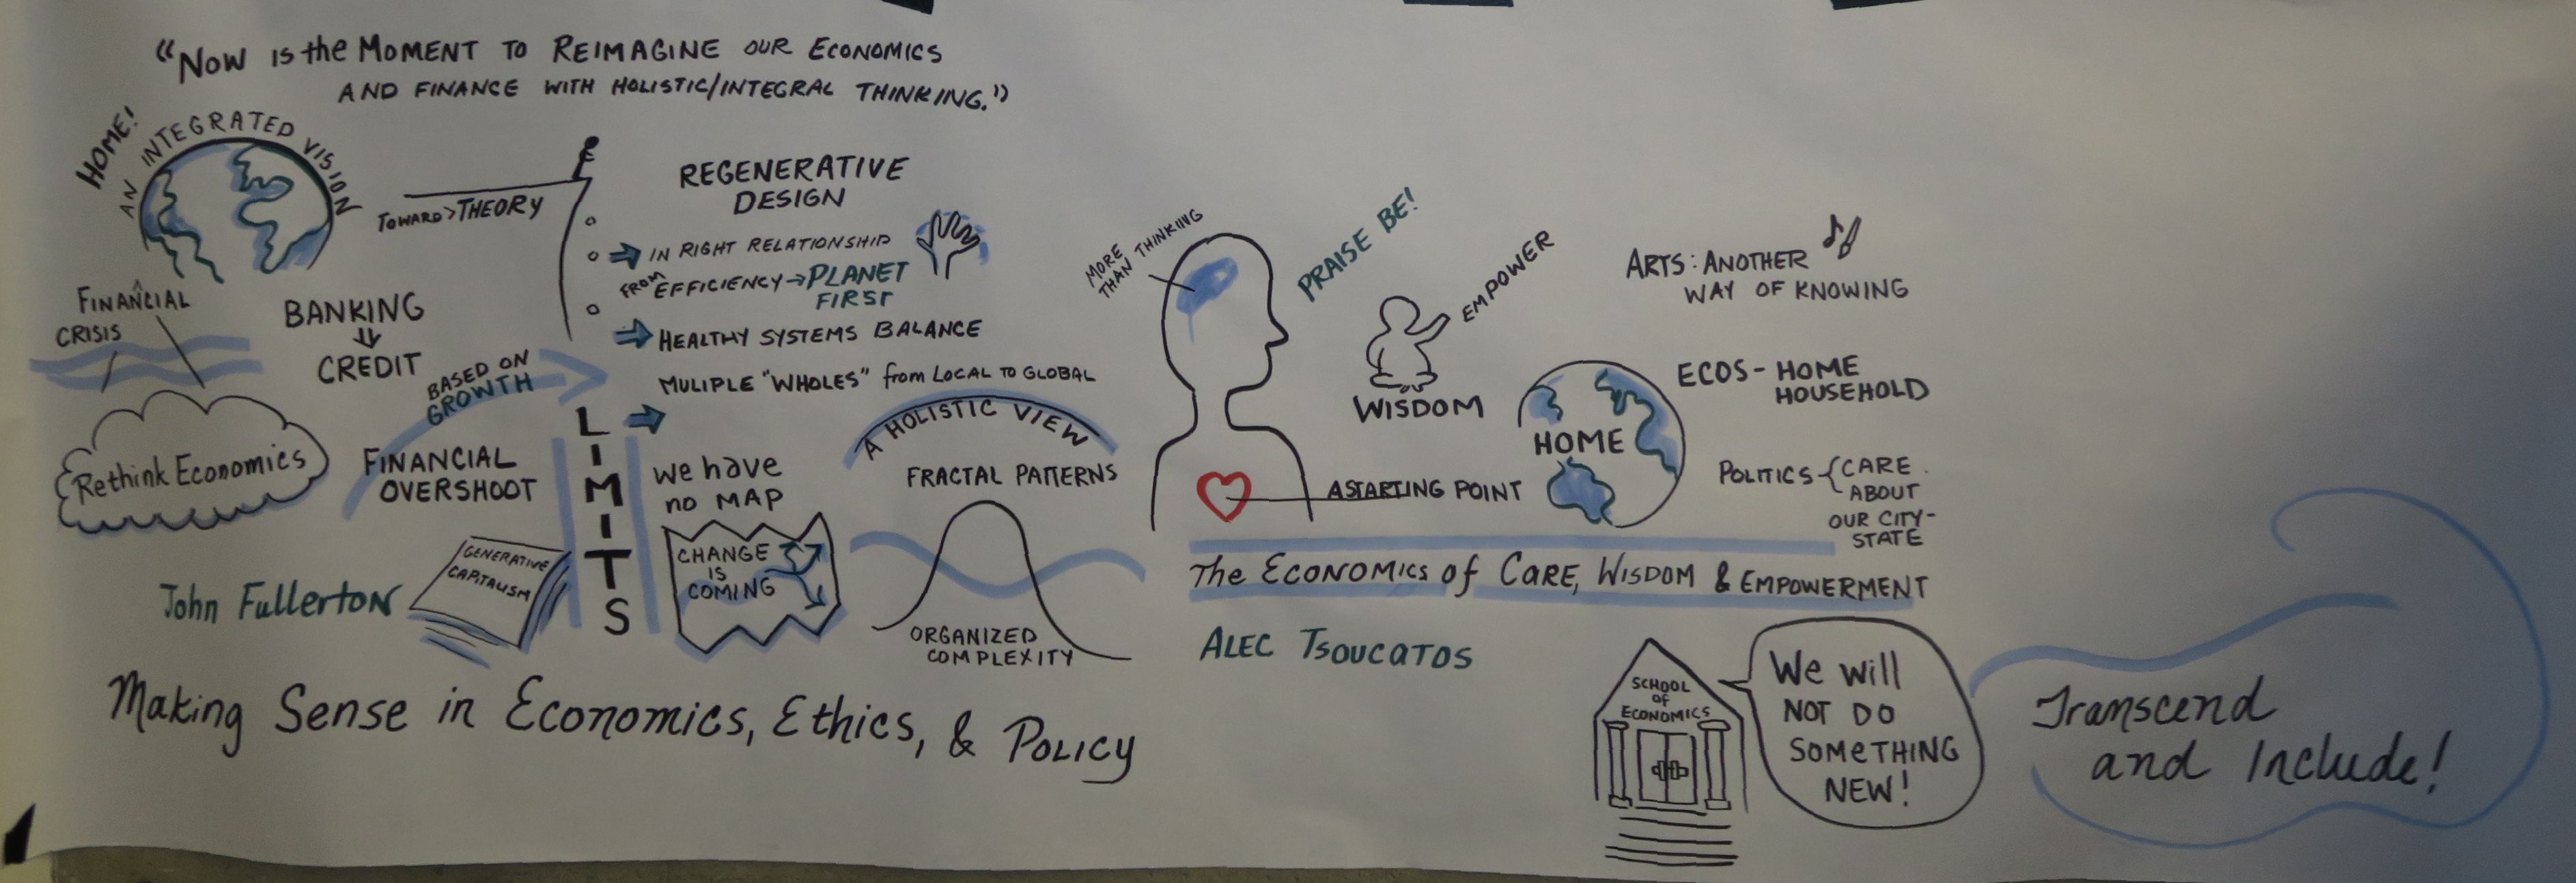 "NOW IS the MOMENT TO REIMAGINE OUR ECONOMICS
AND FINANCE WITH HOLISTIC/INTEGRAL THINKING."
HOME!
AN INTEGRATED VISION
TOWARD > THEORY
REGENERATIVE
DESIGN
IN RIGHT RELATIONSHIP
FROM EFFICIENCY → PLANET
FIRST
HEALTHY SYSTEMS BALANCE
MULIPLE "WHOLES" from LOCAL TO GLOBAL
FINANCIAL
CRISIS
BANKING
CREDIT
BASED ON
GROWTH
Rethink Economics
FINANCIAL
OVERSHOOT
LIMITS
we have
no MAP
CHANGE
IS
COMING
A HOLISTIC VIEW
FRACTAL PATTERNS
ORGANIZED
COMPLEXITY
GENERATIVE
CAPITALISM
John Fullerton
Making Sense in Economics, Ethics, & Policy
MORE
THAN THINKIING
PRAISE BE!
EMPOWER
WISDOM
A STARTING POINT
HOME
ARTS: ANOTHER
WAY OF KNOWING
ECOS - HOME
HOUSEHOLD
POLITICS { CARE
ABOUT
OUR CITY-
STATE
The ECONOMICS of CARE, WISDOM & EMPOWERMENT
ALEC TSOUCATOS
SCHOOL
OF
ECONOMICS
We will
NOT DO
SOMETHING
NEW!
Transcend
and Include!